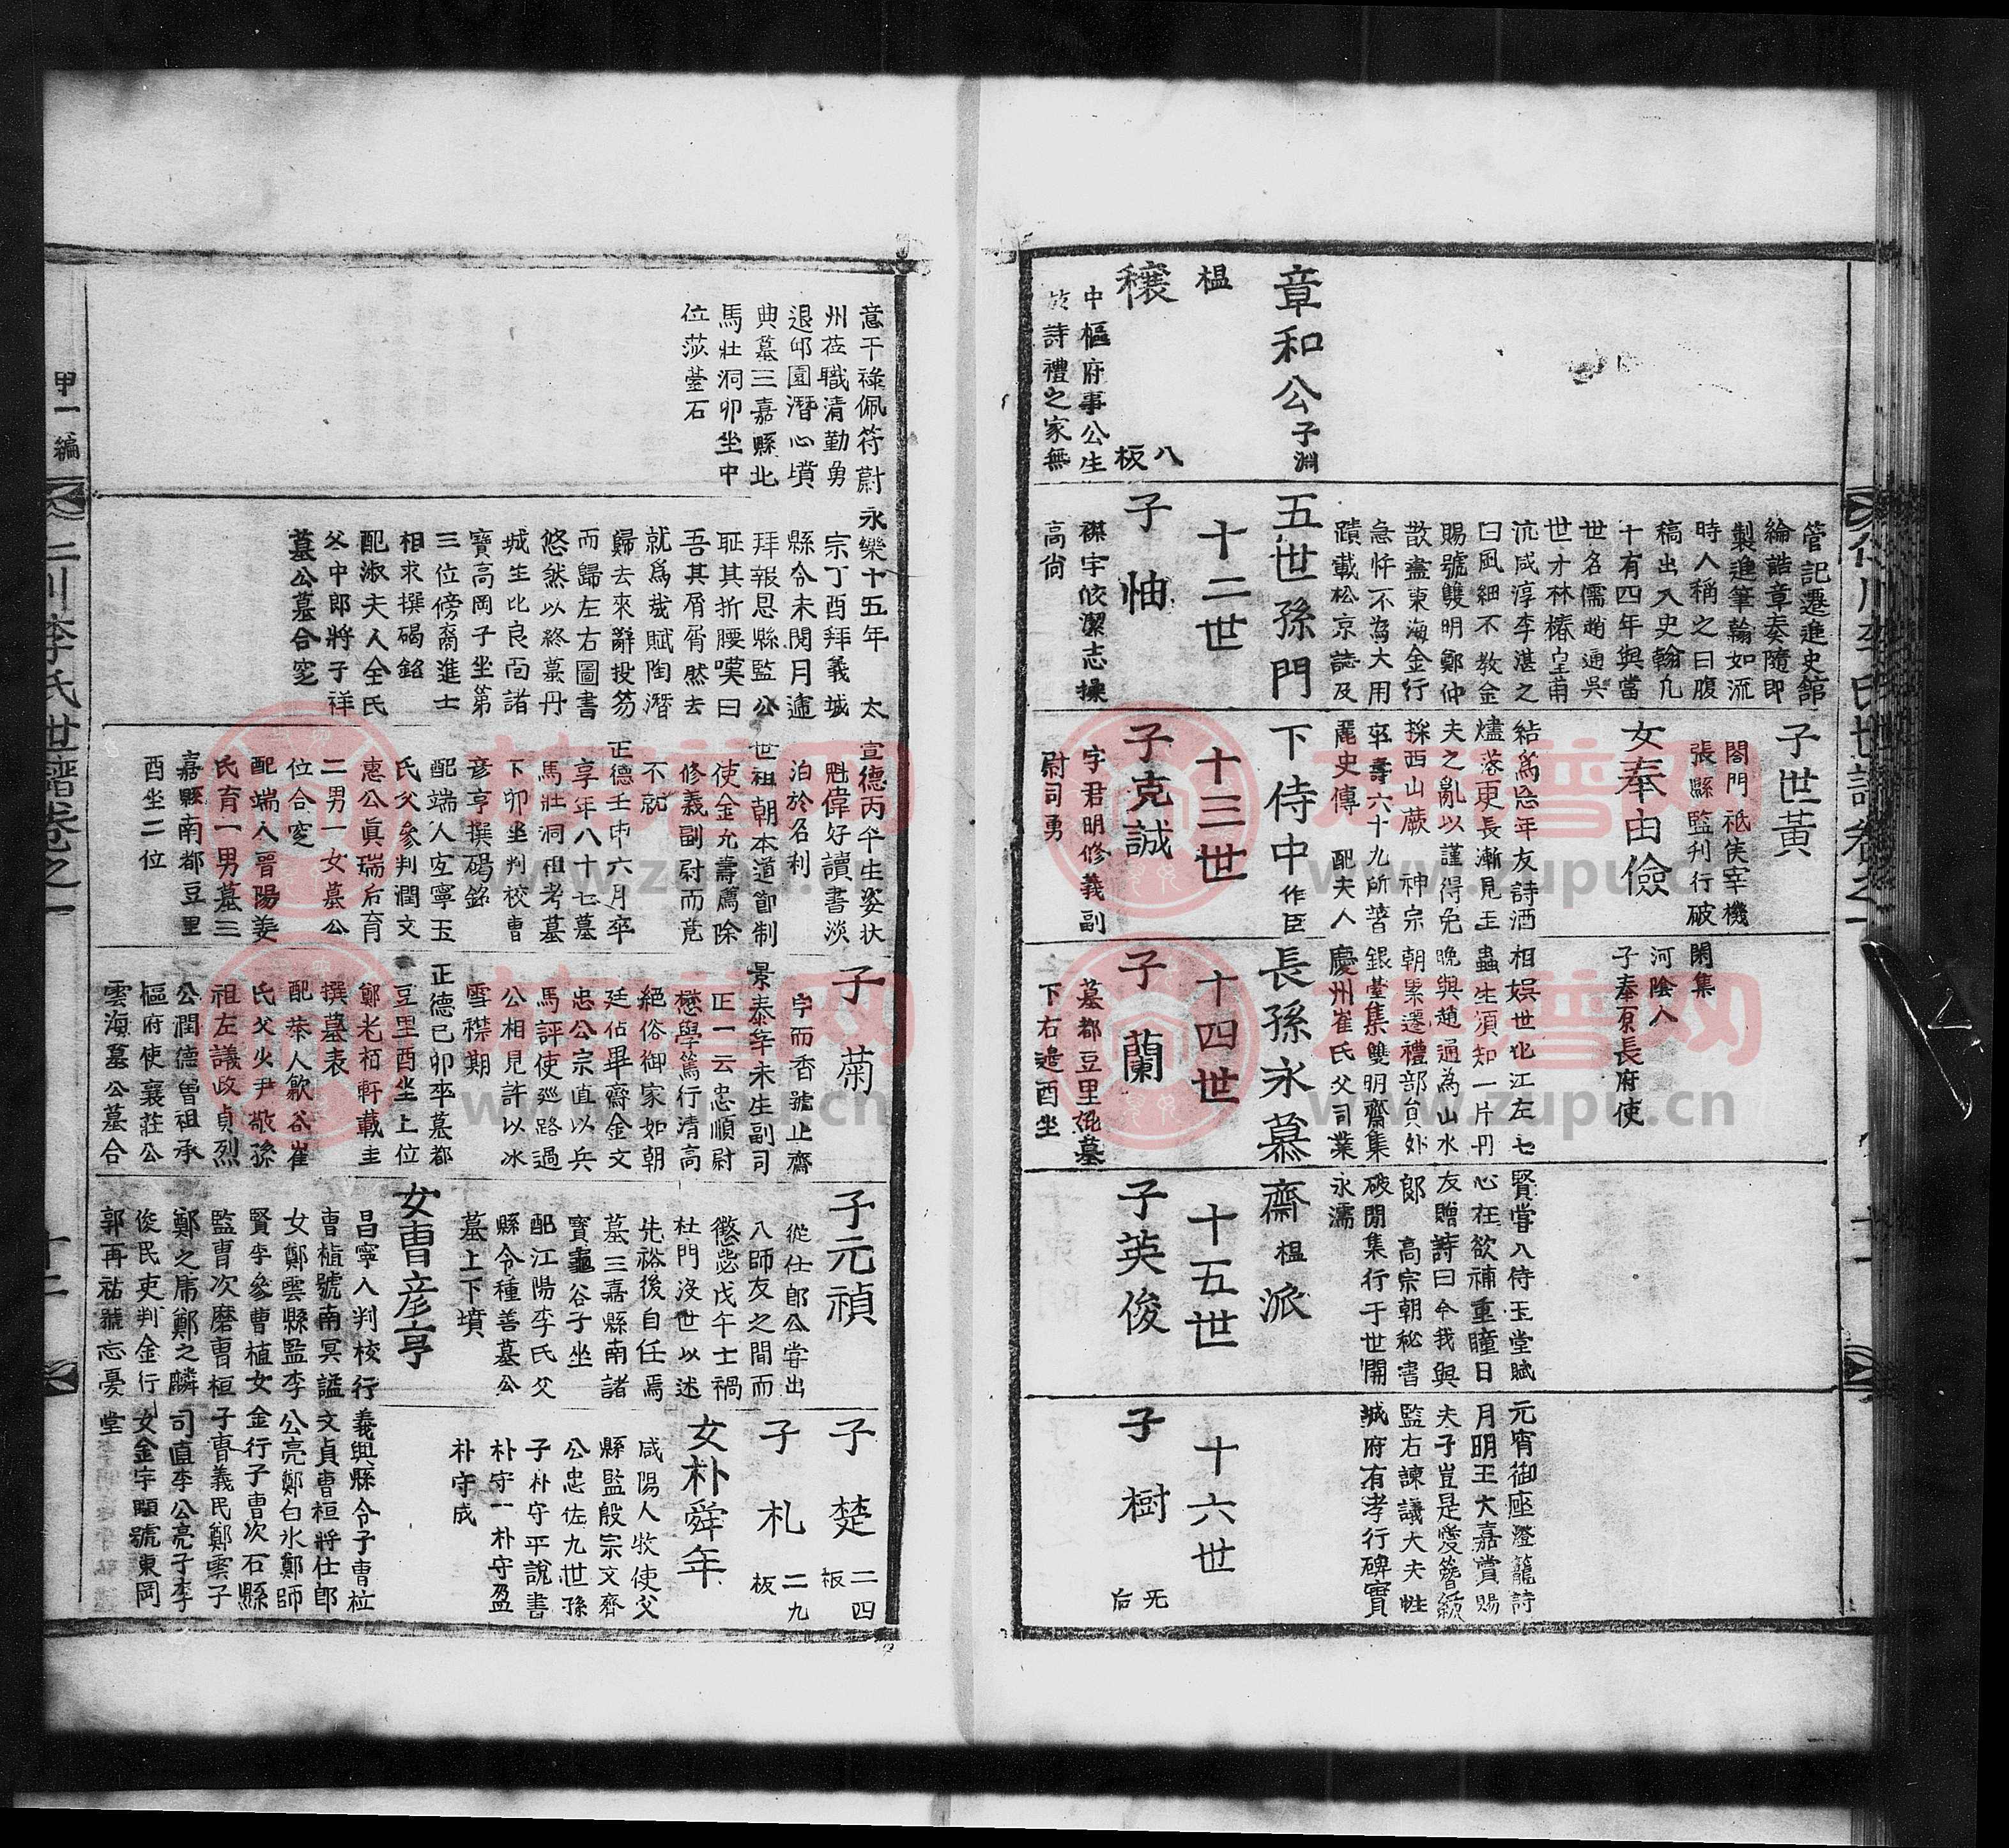 仁川李氏世譜卷之一
管記遷進史館
綸誥章奏隨即
製進筆翰如流
時人稱之曰腹
稿出入史翰凡
十有四年與當
世名儒趙通吳
世才林椿皇甫
沆咸淳李湛之
曰風細不教金
賜號雙明鄭仲
散盡東海金行
急忤不為大用
蹟載松京誌及
子世黃
閤門祗侯宰機
張縣監判行破
閑集
女奉由儉
河陰人
子奉原長府使
結爲忘年友詩酒
燼落更長漸見玉
夫之亂以謹得免
採西山蕨 神宗
卒壽六十九所著
麗史傳 配夫人
相娛世比江左七
蟲生須知一片丹
晚與趙通為山水
朝累遷禮部員外
銀臺集雙明齋集
慶州崔氏父司業
賢嘗入侍玉堂賦
心在欲補重瞳日
友贈詩曰今我與
郎 高宗朝秘書
破閒集行于世開
永濡
元宵御座燈籠詩
月明王大嘉賞賜
夫子豈是愛簪紱
監右諫議大夫性
城府有孝行碑實
章和公子淵
五世孫門
下侍中作臣
長孫永慕
齋榅派
榅
十二世
十三世
十四世
十五世
十六世
穰
八板
中樞府事公生
於詩禮之家無
子怞
襟宇皎潔志操
高尙
子克誠
字君明修義副
尉司勇
子蘭
墓都豆里
下右邊酉坐
子英俊
子樹
无后
意干祿佩符蔚
州莅職清勤勇
退邱園潛心墳
典墓三嘉縣北
馬壯洞卯坐中
位莎臺石
永樂十五年 太
宗丁酉拜義城
縣令未閱月遽
拜報恩縣監公
耻其折腰嘆曰
吾其屑屑然去
就爲哉賦陶潛
歸去來辭投笏
而歸左右圖書
悠然以終墓丹
城生比良面諸
寶高岡子坐第
三位傍裔進士
相求撰碣銘
配淑夫人全氏
父中郎將子祥
墓公墓合窆
宣德丙午生姿狀
魁偉好讀書淡
泊於名利
世祖朝本道節制
使金允壽薦除
修義副尉而竟
不就
正德壬申六月卒
享年八十七墓
馬壯洞祖考墓
下卯坐判校曹
彦亨撰碣銘
配端人宜寧玉
氏父參判潤文
惠公眞瑞后育
二男一女墓公
位合窆
配端人晋陽姜
氏育一男墓三
嘉縣南都豆里
酉坐二位
子菊
字而香號止齋
景泰辛未生副司
正一云忠順尉
懋學篤行清高
絕俗御家如朝
廷佔畢齋金文
忠公宗直以兵
馬評使巡路過
公相見許以冰
雪襟期
正德己卯卒墓都
豆里酉坐上位
鄭老栢軒載圭
撰墓表
配恭人歙谷崔
氏父少尹敬孫
祖左議政貞烈
公潤德曾祖承
樞府使襄莊公
雲海墓公墓合
子元禎
從仕郎公嘗出
入師友之間而
懲毖戊午士禍
杜門沒世以述
先裕後自任焉
墓三嘉縣南諸
寶龜谷子坐
配江陽李氏父
縣令種善墓公
墓上下墳
女曺彦亨
昌寧人判校行
曺植號南冥謚
女鄭雲縣監李
賢李參曺植女
監曺次磨曺桓
鄭之庸鄭之麟
俊民吏判金行
郭再祐號忘憂
子楚
二四板
子札
二九板
女朴舜年
咸陽人牧使父
縣監殷宗文齋
公忠佐九世孫
子朴守平說書
朴守一朴守盈
朴守成
義興縣令子曺柆
文貞曺桓將仕郎
公亮鄭白氷鄭師
金行子曺次石縣
子曺義民鄭雲子
司直李公亮子李
女金宇顒號東岡
堂
甲一編
仁川李氏世譜卷之一
十二
族谱网
www.zupu.cn
族谱网
www.zupu.cn
族谱网
www.zupu.cn
族谱网
www.zupu.cn